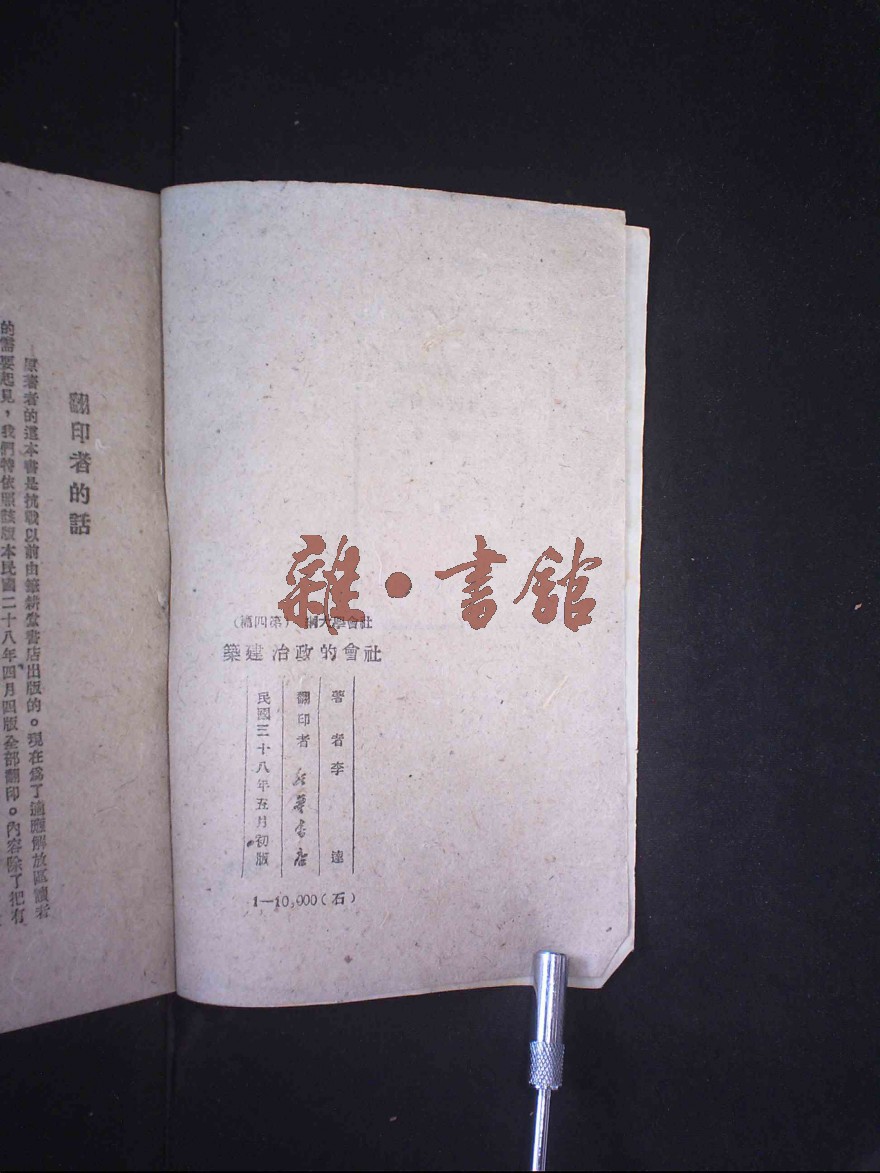 雜·書館
社會學大綱(第四篇)
社會的政治建築
著者李達
翻印者 新華書店
民國三十八年五月初版
1—10,000(石)
翻印者的話
原著者的這本書是抗戰以前由筆耕堂書店出版的。現在爲了適應解放區讀者
的需要起見，我們特依照該版本民國二十八年四月四版全部翻印。內容除了把有